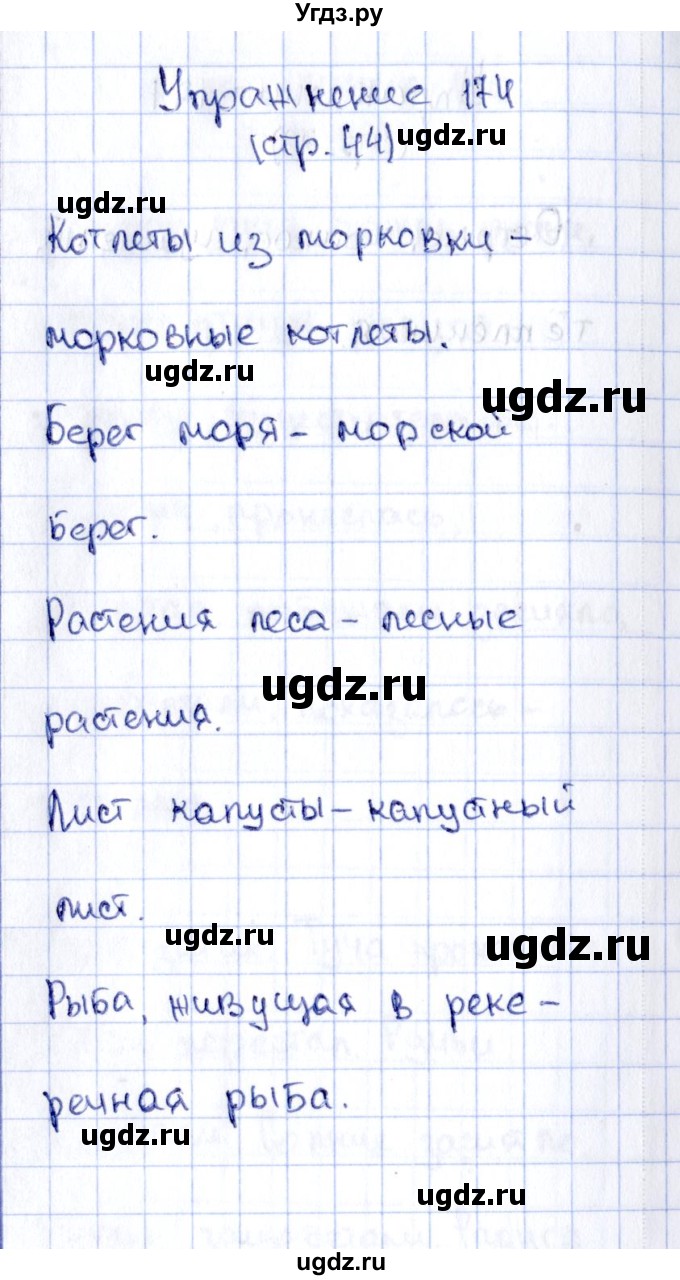 Угдз.ру
Упражнение 174
(стр. 44) ugdz.ru
ugdz.ru
Котлеты из морковки -
морковные котлеты.
ugdz.ru
ugdz.ru
Берег моря - морской
берег.
Растения леса - лесные
ugdz.ru
растения.
Лист капусты - капустный
лист.
ugdz.ru
ugdz.ru
Рыба, живущая в реке -
речная рыба.
ugdz.ru
ugdz.ru
ugdz.ru